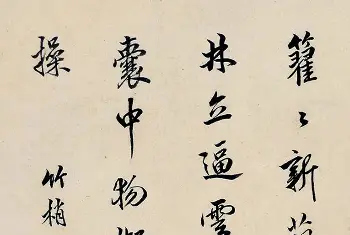 籊〻新
林立逼雲
囊中物
操
竹梢